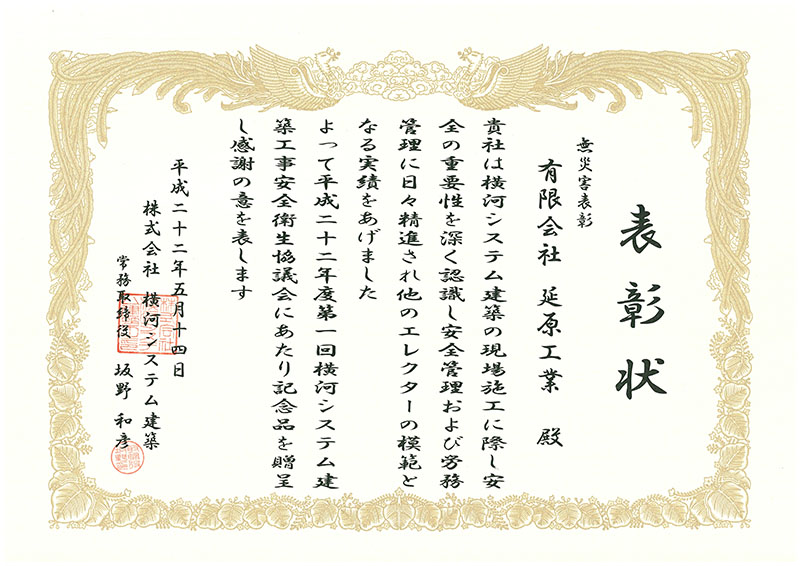 表彰状
無災害表彰
有限会社 延原工業 殿
貴社は横河システム建築の現場施工に際し安
全の重要性を深く認識し安全管理および労務
管理に日々精進され他のエレクターの模範と
なる実績をあげました
よって平成二十二年度第一回横河システム建
築工事安全衛生協議会にあたり記念品を贈呈
し感謝の意を表します
平成二十二年五月十四日
株式会社 横河システム建築
常務取締役 坂野 和彦